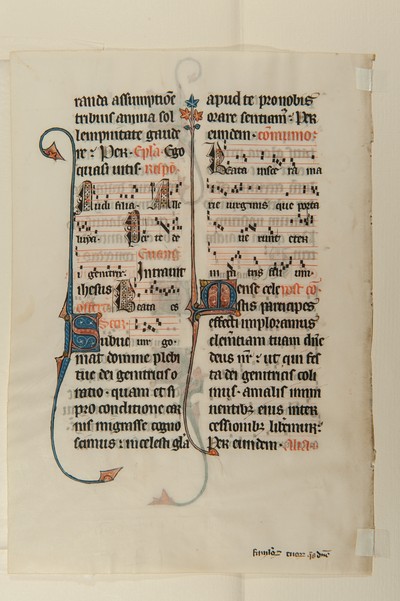 randa assumptiōe
tribuis annua sol
lempnitate gaude
re: Per. Epla. Ego
quasi uitis. Respō.
Audi filia. Alle
luya. Per te de
Euang.
i genitrix. Intrauit
ihesus Beata es
Secr. uir go.
Subue
niat domine plebi
tue dei genitricis o
ratio. quam et si
pro conditione car
nis migrasse cogno
scimus: in celesti glā
apud te pro nobis
orare sentiam. Per
eundem. cōmunio.
Beata uisce ra ma
rie uirginis que porta
ue runt eter
ni pa tris fili um.
Mense cele post cō
stis participes
effecti imploramus
clementiam tuam dñe
deus nr̄: ut qui fes
ta dei genitricis coli
mus. a malis immi
nentibus eius inter
cessionibus liberemur.
Per eundem. Alia.